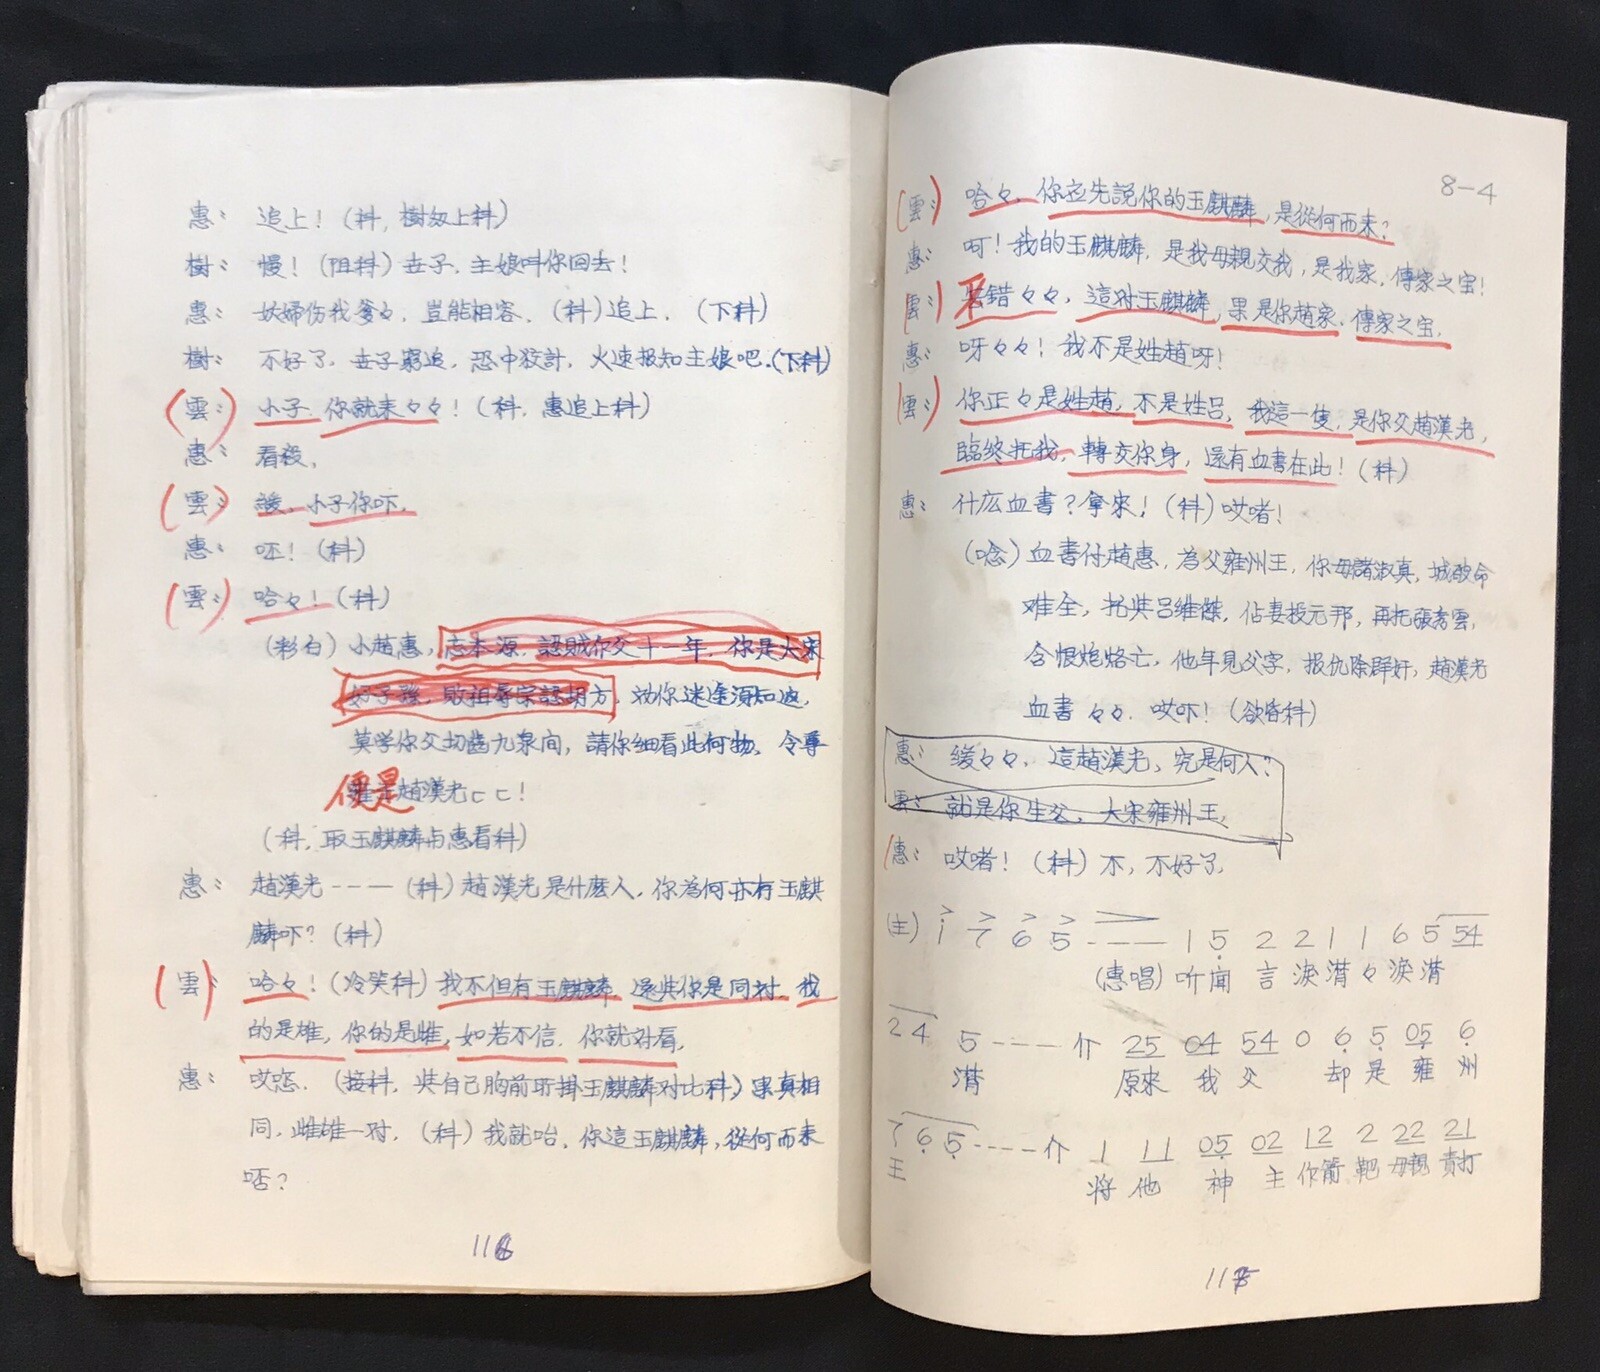 惠: 追上!(科, 樹奴上科)
樹: 慢!(阻科)世子, 主娘叫你回去!
惠: 妖婦伤我爹々, 豈能相容, (科)追上, (下科)
樹: 不好了, 世子窮追, 恐中狡計, 火速报知主娘吧, (下科)
(雲:) 小子, 你就来々々!(科, 惠追上科)
惠: 看殺,
(雲:) 緩, 小子你吓,
惠: 呸!(科)
(雲:) 哈々!(科)
(彩白) 小趙惠, 忘本源, 認賊你父十一年, 你是大宋
好子孫, 敗祖辱宗認胡方, 劝你迷途須知返,
莫学你父切齒九泉间, 請你细看此何物, 令尊
便是趙漢光匸匸!
(科, 取玉麒麟与惠看科)
惠: 趙漢光---(科)趙漢光是什麽人, 你為何亦有玉麒
麟吓?(科)
(雲:) 哈々!(冷笑科)我不但有玉麒麟, 還共你是同对, 我
的是雄, 你的是雌, 如若不信, 你就对看,
惠: 哎恋, (接科, 共自己胸前所掛玉麒麟对比科)果真相
同, 雌雄一对, (科)我就咍, 你這玉麒麟, 從何而来
唔?
116
8-4
(雲:) 哈々, 你应先説你的玉麒麟, 是從何而来?
惠: 呵!我的玉麒麟, 是我母親交我, 是我家, 傳家之宝!
(雲:) 不錯々々, 這对玉麒麟, 果是你趙家, 傳家之宝,
惠: 呀々々!我不是姓趙呀!
(雲:) 你正々是姓趙, 不是姓吕, 我這一隻, 是你父趙漢光,
臨終托我, 轉交你身, 還有血書在此!(科)
惠: 什庅血書?拿來!(科)哎啫!
(唸)血書付趙惠, 為父雍州王, 你母諸淑真, 城破命
难全, 托共吕維傑, 佔妻投元邦, 再托張秀雲,
含恨炮烙亡, 他年見父字, 报仇除群奸, 趙漢光
血書々々, 哎吓!(欲昏科)
惠: 缓々々, 這趙漢光, 究是何人?
雲: 就是你生父, 大宋雍州王,
惠: 哎啫!(科)不, 不好了,
(主) i 7 6 5 ---- 1 5 2 2 1 1 6 5 54
(惠唱) 听闻 言 淚潸々淚潸
24 5---- 介 25 04 54 0 6 5 05 6
潸 原來 我 父 却 是 雍 州
7 6 5---- 介 1 11 05 02 12 2 22 21
王 将 他 神 主 作箭 靶 母親 責打
117